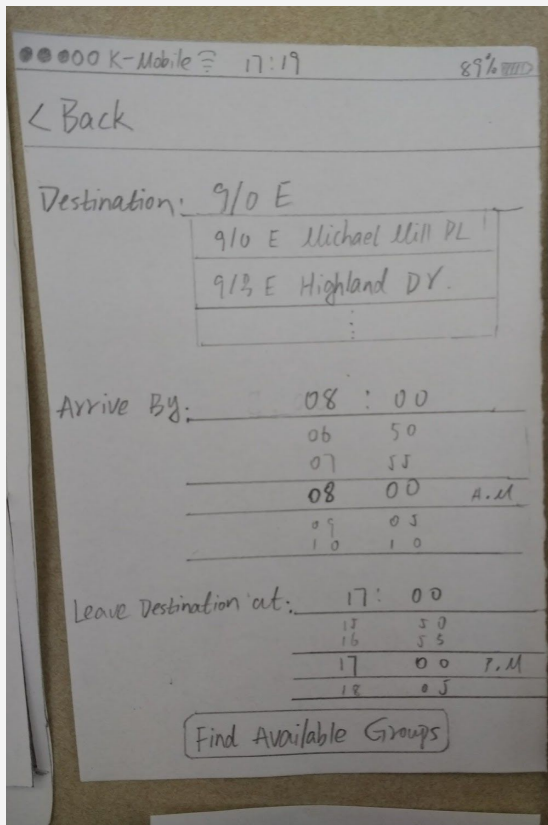 K-Mobile 17:19 89%
< Back
Destination: 910 E
910 E Michael Mill PL
913 E Highland DR.
Arrive By: 08 : 00
06 50
07 55
08 00 A.M
09 05
10 10
Leave Destination at: 17: 00
15 50
16 55
17 00 P.M
18 05
Find Available Groups